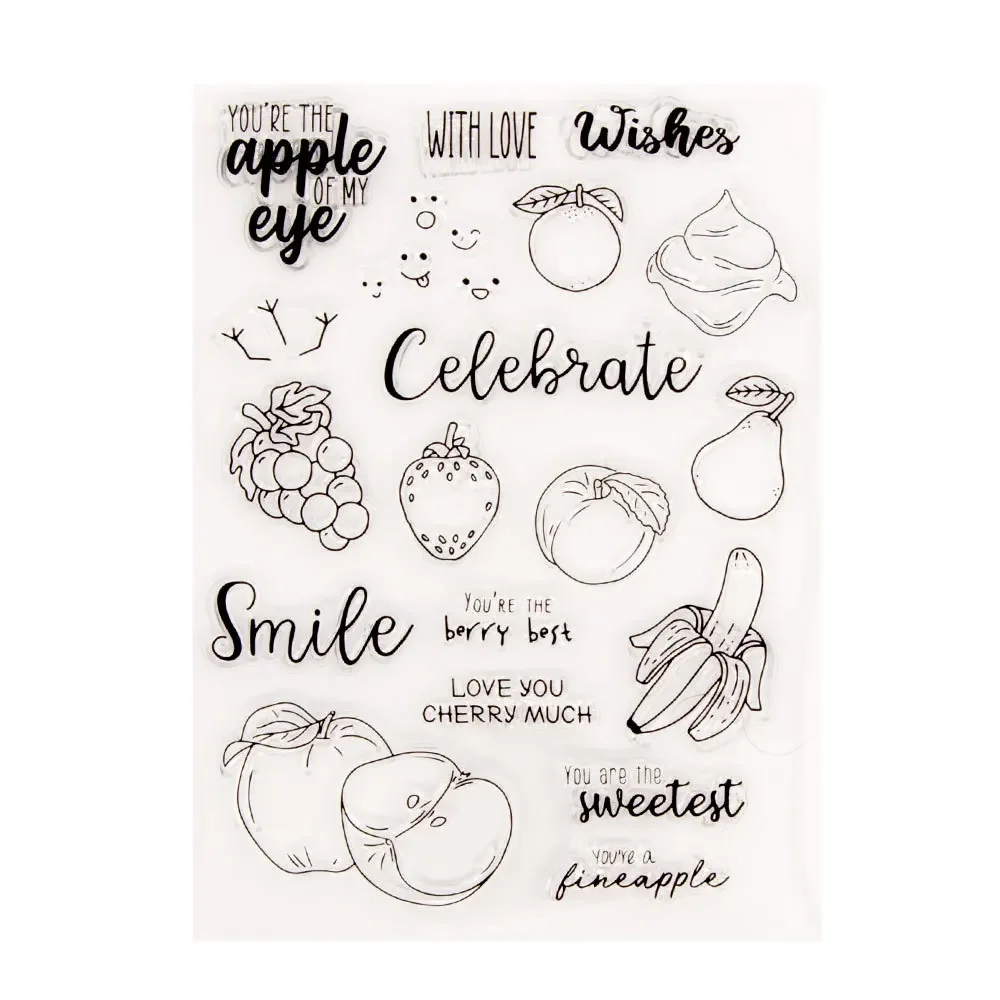 YOU'RE THE
apple
OF MY
eye
WITH LOVE
Wishes
Celebrate
Smile
YOU'RE THE
berry best
LOVE YOU
CHERRY MUCH
YOU are the
sweetest
YOU'RE a
fineapple